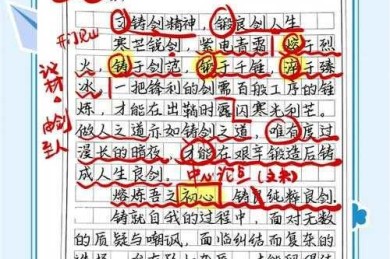 习铸剑精神，锻良剑人生
开门见山
寒芒锐剑，紫电青霜。熔于烈
火，铸于剑范，锻于千锤，淬于臻
冰，一把锋利的剑需百般工序的锤
炼，才能在出鞘时露闪寒光利芒。
做人之道亦如铸剑之道，唯有度过
漫长的暗夜，才能在艰辛锻造后铸
成人生良剑。中心论点
熔炼吾之初心，铸纯粹良剑。
铸就自我的过程中，面对无数
的质疑与嘲讽，面临纠结而复杂的